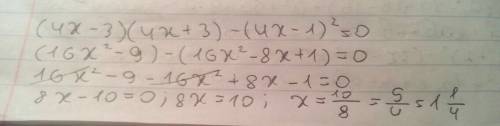 (4x-3)(4x+3)-(4x-1)²=0
(16x²-9)-(16x²-8x+1)=0
16x²-9-16x²+8x-1=0
8x-10=0; 8x=10; x=10/8=5/4=1 1/4